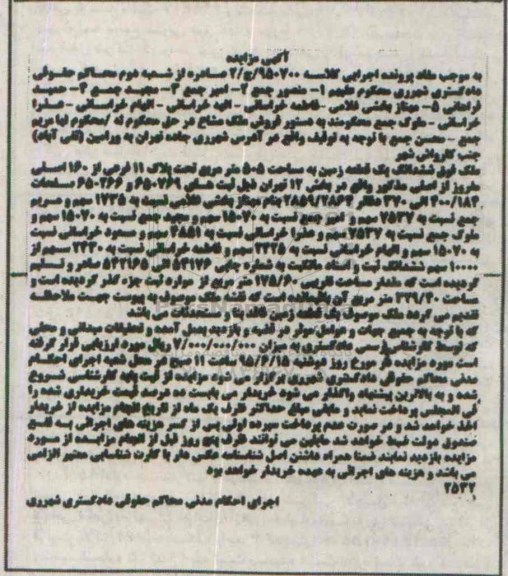 آگهی مزایده
به موجب مفاد پرونده اجرایی کلاسه ۹۵۰۷۰۰/ج/۲ صادره از شعبه دوم محاکم حقوقی
دادگستری شهرری محکوم علیهم ۱- منصور جمع ۲- امیر جمع ۳- مجید جمع ۴- حمید
فراهانی ۵- مهناز بخشی غلامی - فاطمه خراسانی - الهه خراسانی - الهام خراسانی - عذرا
خراسانی - ملوک جمع محکومند به دستور فروش ملک مشاع در حق محکوم له /محکوم لها مریم
جمع - محسن جمع با توجه به توقیف واقع در آدرس شهرری جاده تهران به ورامین (تقی آباد)
جنب کاروانی شهر
ملک فوق ششدانگ یک قطعه زمین به مساحت ۵۰۵ متر مربع تحت پلاک ۱۱ فرعی از ۱۶۰ اصلی
مفروز از اصلی مذکور واقع در بخش ۱۲ تهران ذیل ثبت های ۶۵۰۷۶۹ و ۶۵۰۲۶۶ صفحات
بنام مهناز بخشی غلامی نسبت به ۱۷۳۵ سهم و مریم
جمع نسبت به ۷۵۳۷ سهم و امیر جمع نسبت به ۱۵۰۷۰ سهم و مجید جمع نسبت به ۱۵۰۷۰ سهم و
ملوک جمع نسبت به ۷۵۳۷ سهم و عذرا خراسانی نسبت به ۴۸۵۱ سهم و مسعود خراسانی نسبت
به ۱۵۰۷۰ سهم و الهام خراسانی نسبت به ۲۴۲۵ سهم و فاطمه خراسانی نسبت به ۲۴۳۰ سهم از
سهم ششدانگ ثبت و اسناد مالکیت به شماره چاپی ۵۴۱۷۶ الی ۵۴۲۱۶۵ صادر و تسلیم
گردیده است که مقدار مساحت تقریبی ۱۷۵/۶۰ متر مربع از موارد ثبت جزء گذر گردیده است و
مساحت ۳۲۹/۴۰ متر مربع آن باقیمانده است که کروکی ملک موصوف به پیوست جهت ملاحظه
تقدیم می گردد ملک موصوف یک قطعه زمین فاقد بنا و مستحدثات می باشد
که با توجه به جمیع جهات و عوامل موثر در قضیه و بازدید بعمل آمده و تحقیقات میدانی و محلی
که توسط کارشناس رسمی دادگستری به میزان ۷/۰۰۰/۰۰۰/۰۰۰ ریال مورد ارزیابی قرار گرفته
است مورد مزایده در مورخ روز دوشنبه ۹۵/۶/۱۵ ساعت ۱۱ صبح در محل شعبه اجرای احکام
مدنی محاکم حقوقی دادگستری شهرری برگزار می شود مزایده از ثبت پایه کارشناسی شروع
شده و به بالاترین پیشنهاد واگذار می شود خریدار می بایست ده درصد قیمت خریداری شده را
فی المجلس پرداخت نماید و مابقی مبلغ حداکثر ظرف یک ماه از تاریخ انجام مزایده از خریدار
اخذ خواهد شد و در صورت عدم پرداخت سپرده اولی پس از کسر هزینه های اجرائی به نفع
صندوق دولت ضبط خواهد شد مابقین می توانند ظرف پنج روز قبل از انجام مزایده از مورد
مزایده بازدید نمایند ضمنا همراه داشتن اصل شناسنامه عکس دار یا کارت شناسایی معتبر الزامی
می باشد و هزینه های اجرائی به عهده خریدار خواهد بود
۲۵۳۲
اجرای احکام مدنی محاکم حقوقی دادگستری شهرری